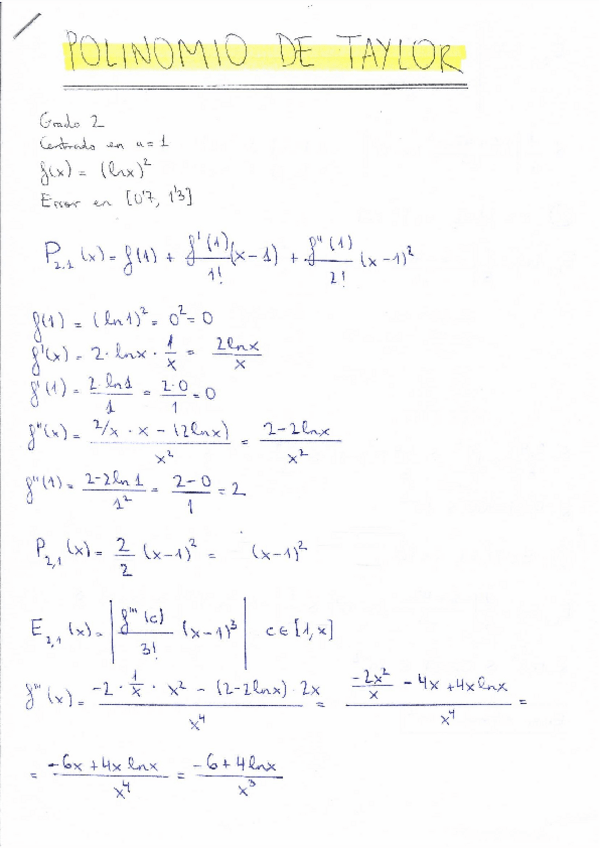 POLINOMIO DE TAYLOR
Grado 2
Centrado en a=1
f(x) = (lnx)²
Error en [0'7, 1'3]
P₂,₁(x) = f(1) + f'(1)/1! (x-1) + f''(1)/2! (x-1)²
f(1) = (ln1)² = 0² = 0
f'(x) = 2·lnx·1/x = 2lnx/x
f'(1) = 2·ln1/1 = 2·0/1 = 0
f''(x) = (2/x · x - (2lnx))/x² = (2-2lnx)/x²
f''(1) = (2-2ln1)/1² = (2-0)/1 = 2
P₂,₁(x) = 2/2 (x-1)² = (x-1)²
E₂,₁(x) = |f'''(c)/3! (x-1)³| c∈[1,x]
f'''(x) = (-2·1/x·x² - (2-2lnx)·2x)/x⁴ = (-2x²/x - 4x + 4xlnx)/x⁴ =
= (-6x+4xlnx)/x⁴ = (-6+4lnx)/x³